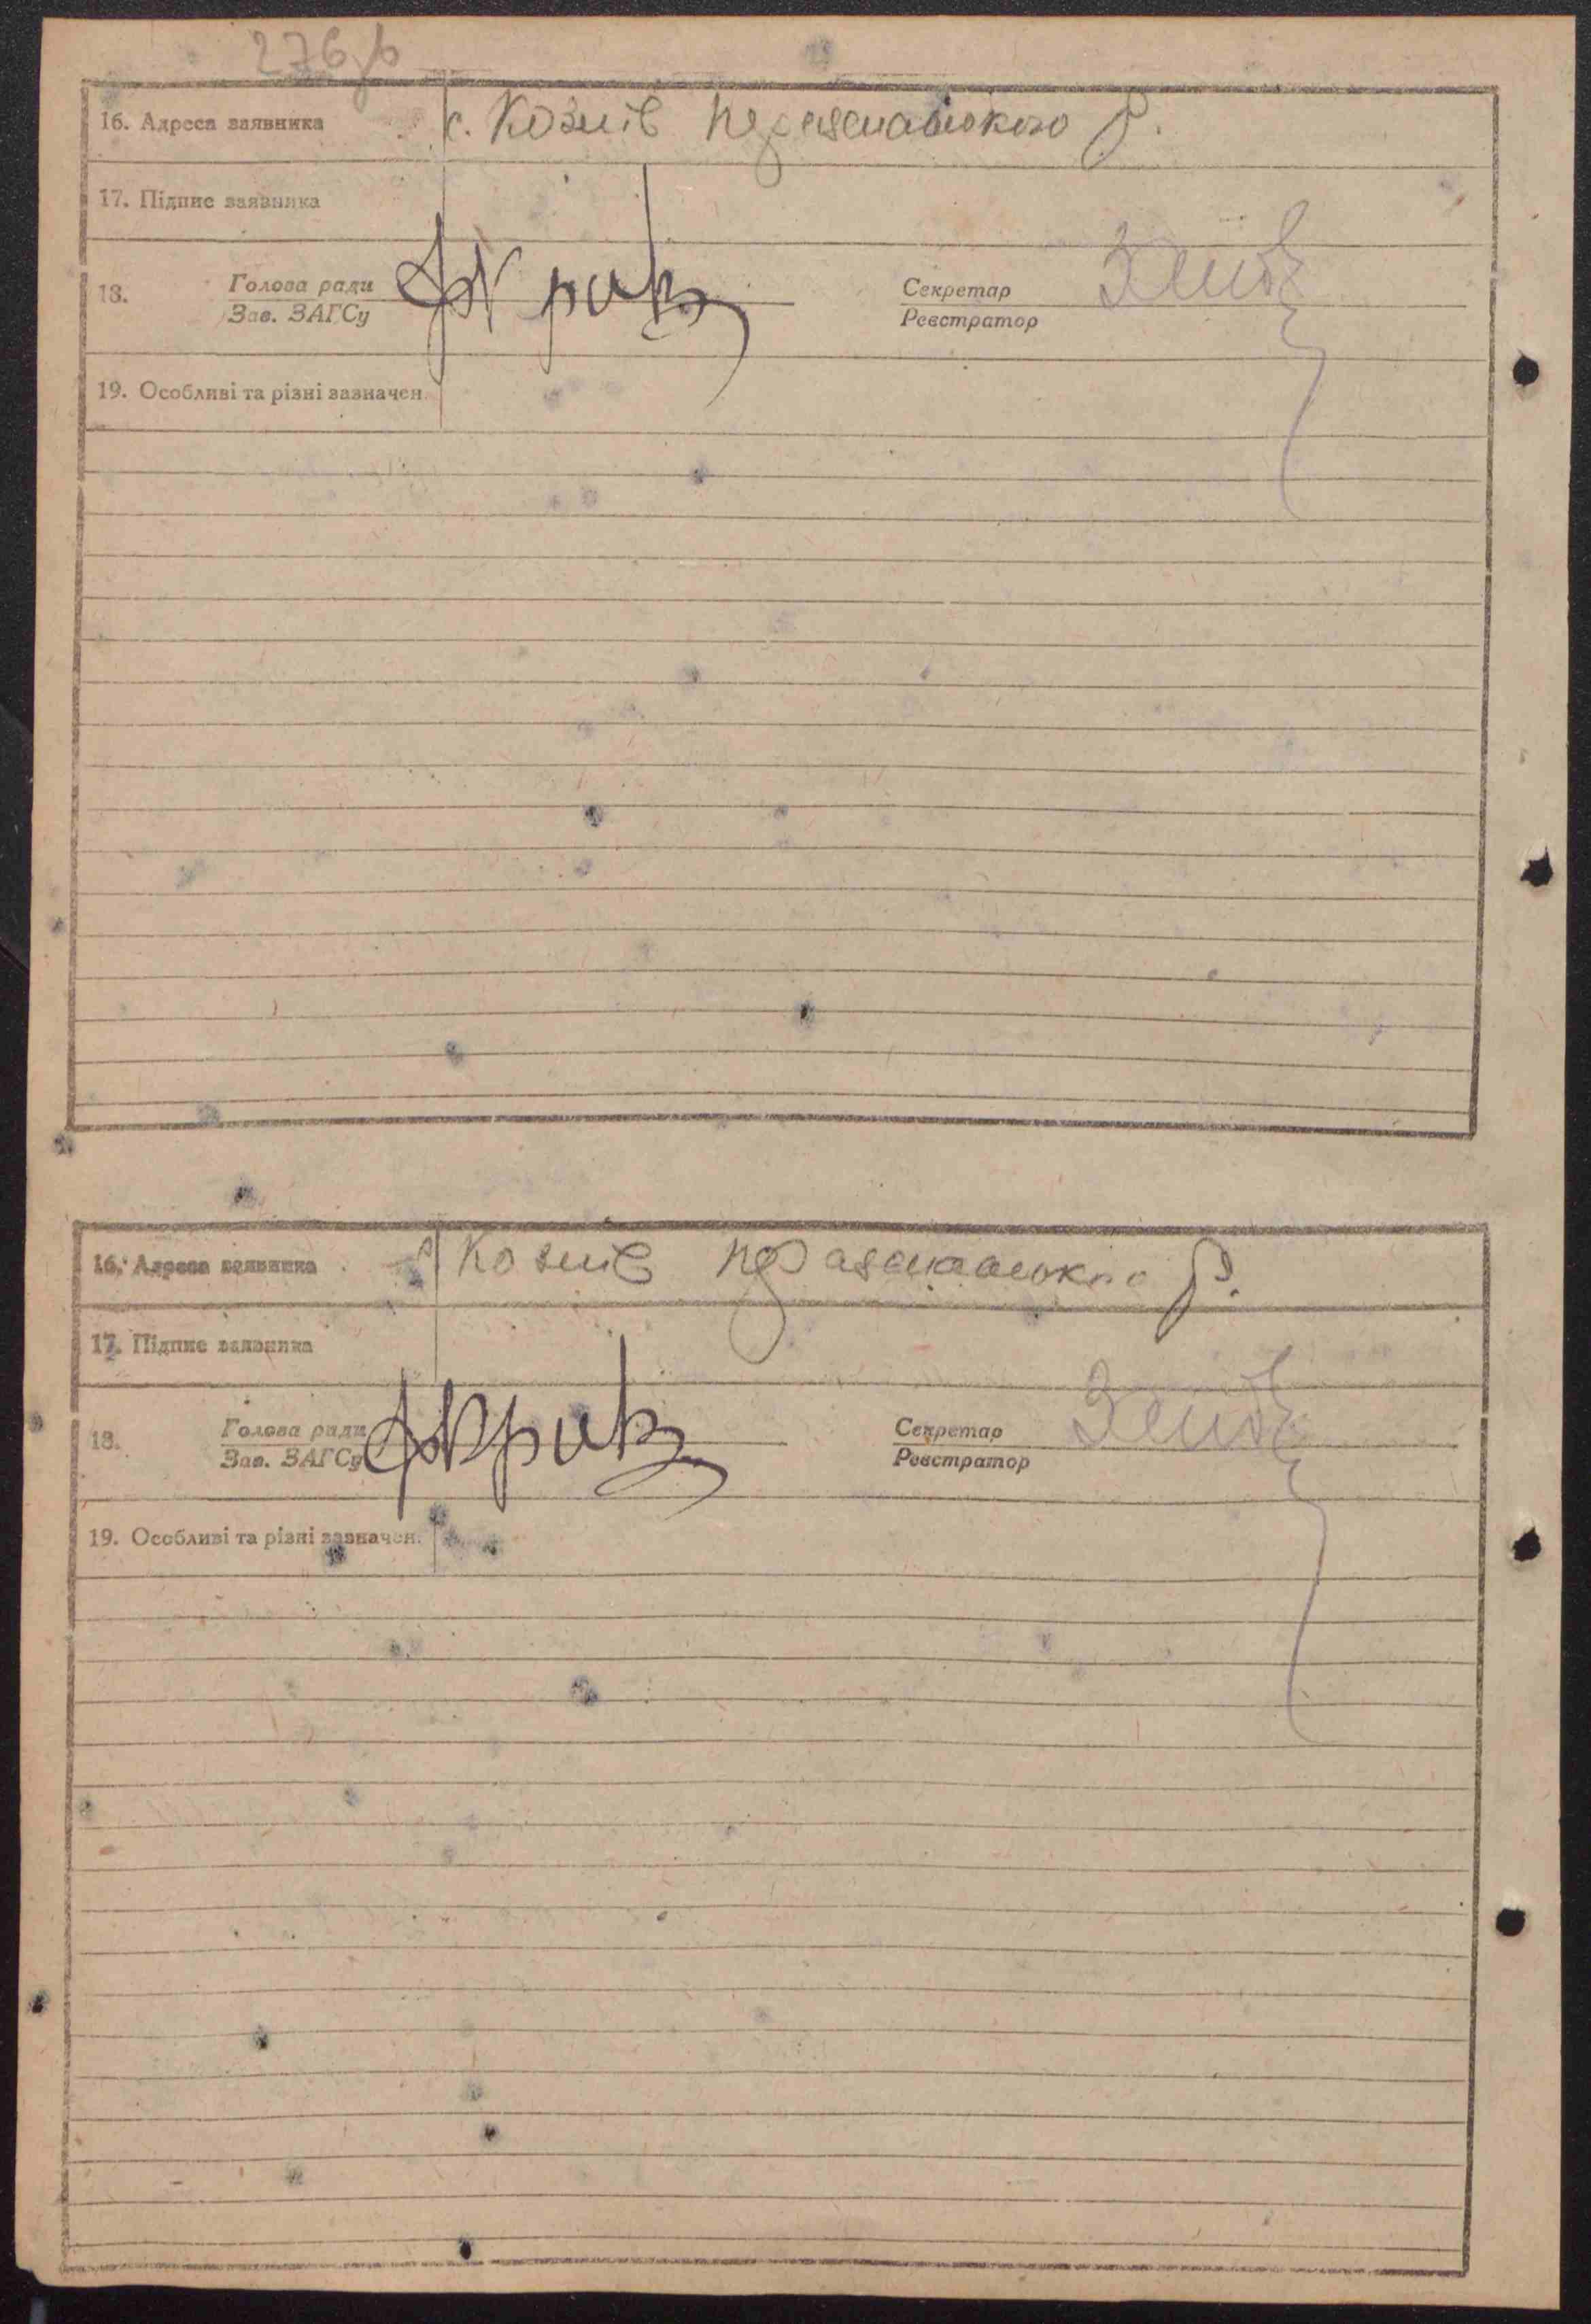 276зв
16. Адреса заявника с. Козлів Переяславського р.
17. Підпис заявника
18. Голова ради Секретар
Зав. ЗАГСу Реєстратор
19. Особливі та різні зазначен.
16. Адреса заявника с. Козлів Переяславського р.
17. Підпис заявника
18. Голова ради Секретар
Зав. ЗАГСу Реєстратор
19. Особливі та різні зазначен.